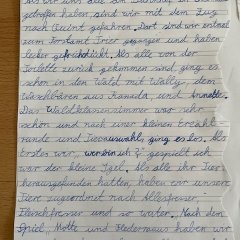 getroffen haben sind wir mit dem Zug
nach Quint gefahren. Dort sind wir erstmal
zum Forstamt Trier gegangen und haben
lecker gefrühstückt. Als alle von der
Toilette zurück gekommen sind ging es
schon in den Wald mit Wally, dem
Waschbären aus Kanada und Annette.
Das Waldklassenzimmer war sehr
schön und nach einer kleinen Erzähl
runde und Teamauswahl, ging es los. Als
erstes war, „wer bin ich?" gespielt ich
war der kleine Igel. Als alle ihr Tier
herausgefunden hatten, haben wir unsere
Tiere zugeordnet nach Allesfresser,
Fleischfresser und so weiter. Nach dem
Spiel, Motte und Fledermaus haben wir